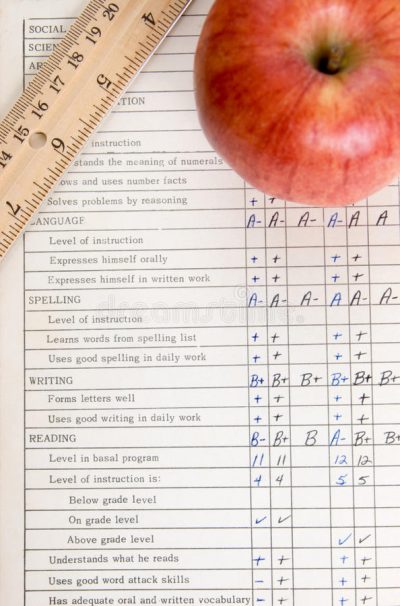 SOCIAL
20
19
18
17
16
15
14
4
5
6
7
instruction
the meaning of numerals
and uses number facts
Solves problems by reasoning + +
LANGUAGE A- A- A- A- A A
Level of instruction
Expresses himself orally + + + +
Expresses himself in written work + + + +
SPELLING A- A- A- A A- A-
Level of instruction
Learns words from spelling list + + + +
Uses good spelling in daily work + + + +
WRITING B+ B+ B+ B+ B+ B+
Forms letters well + + + +
Uses good writing in daily work + + + +
READING B- B+ B A- B+ B+
Level in basal program 11 11 12 12
Level of instruction is: 4 4 5 5
Below grade level
On grade level ✓ ✓
Above grade level ✓ ✓
Understands what he reads + + + +
Uses good word attack skills - + + +
Has adequate oral and written vocabulary - + + +